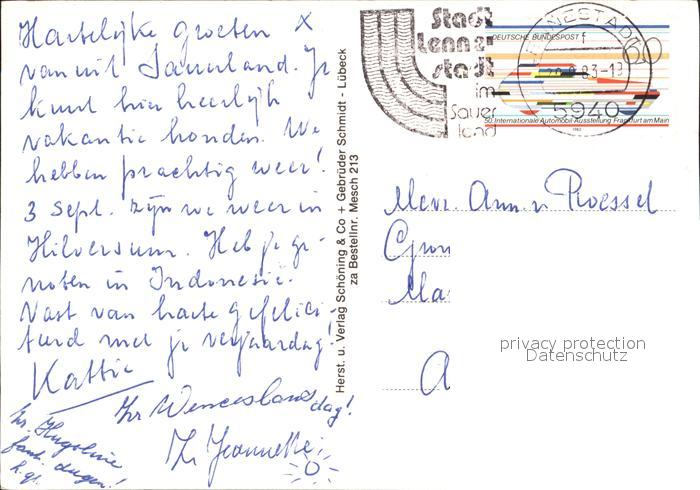 Hartelijke groeten x
vanuit Sauerland. Je
kunt hier heerlijk
vakantie houden. We
hebben prachtig weer!
3 Sept. zijn we weer in
Hilversum. Heb je ge-
noten in Indonesië.
Vast van harte gefelici-
teerd met je verjaardag!
Kattie
Zr Wenceslaus dag!
Zr. Hugoline
fanti dagen!
h. gr.
Zr Jeannette
Herst. u. Verlag Schöning & Co + Gebrüder Schmidt - Lübeck
za Bestellnr. Mesch 213
Stadt
Lenne
stadt
im
Sauer
land
LENNESTADT
83-19
5940
DEUTSCHE BUNDESPOST
60
50. Internationale Automobil-Ausstellung Frankfurt am Main
1983
Mevr. Ann. v. Roessel
Gron
Ma
A
privacy protection
Datenschutz